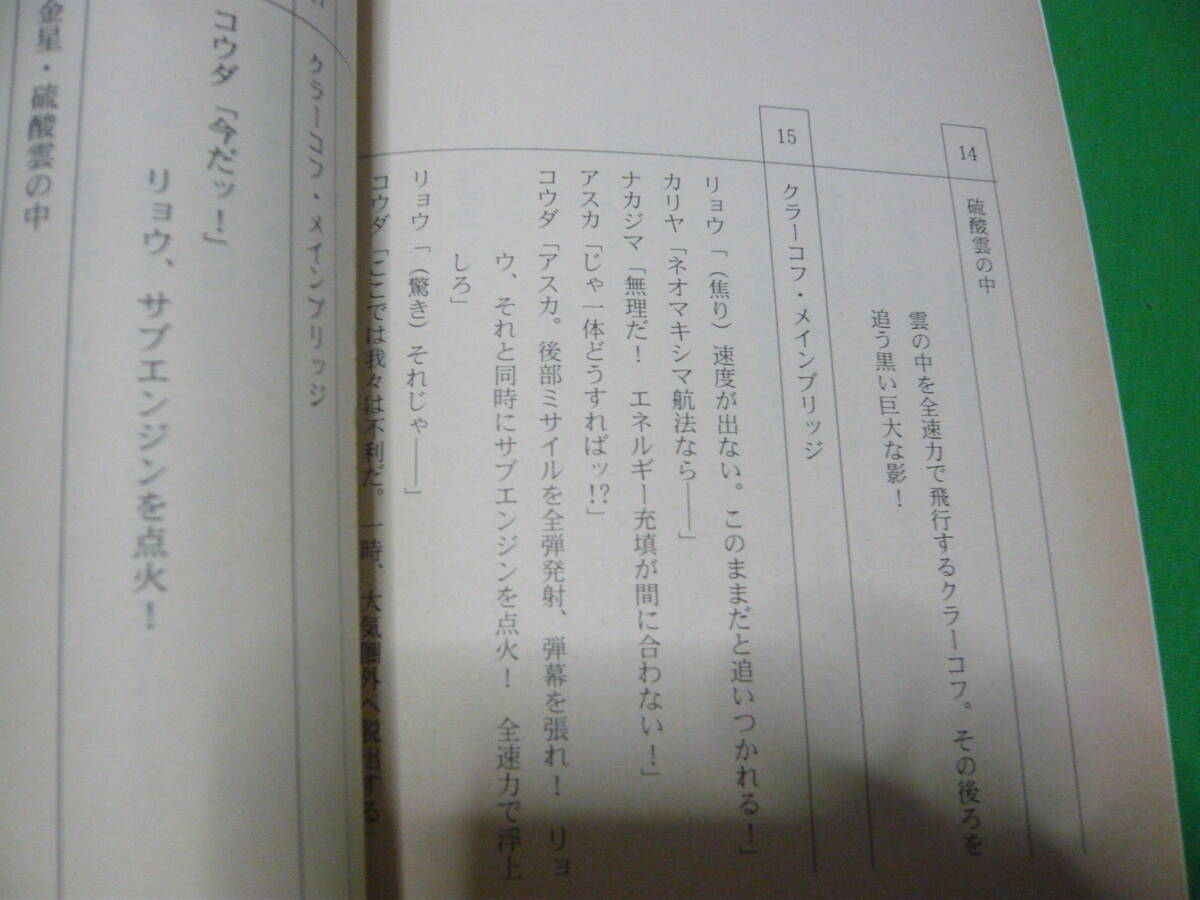 14
硫酸雲の中
雲の中を全速力で飛行するクラーコフ。その後ろを
追う黒い巨大な影！
15
クラーコフ・メインブリッジ
リョウ「（焦り）速度が出ない。このままだと追いつかれる！」
カリヤ「ネオマキシマ航法なら――」
ナカジマ「無理だ！　エネルギー充填が間に合わない！」
アスカ「じゃ一体どうすればッ!?」
コウダ「アスカ。後部ミサイルを全弾発射、弾幕を張れ！　リョ
ウ、それと同時にサブエンジンを点火！　全速力で浮上
しろ」
リョウ「（驚き）それじゃ――」
コウダ「ここでは我々は不利だ。一時、大気圏外へ脱出する」
クラーコフ・メインブリッジ
コウダ「今だッ！」
リョウ、サブエンジンを点火！
金星・硫酸雲の中